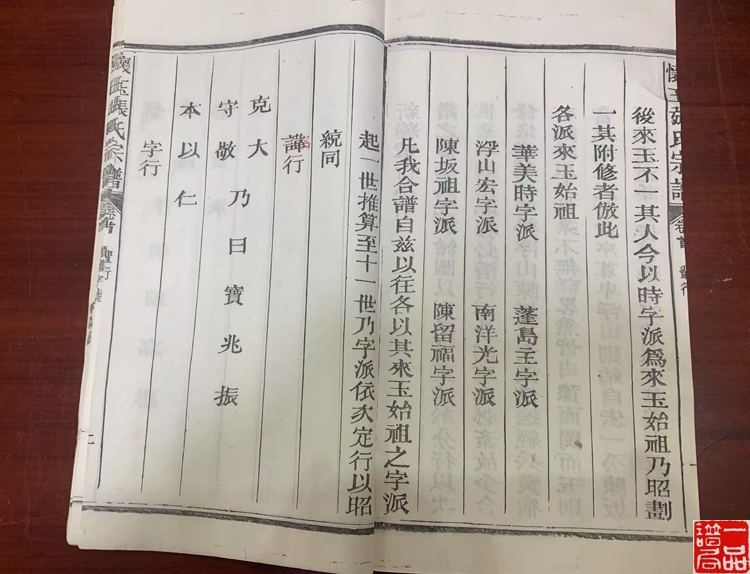 後來玉不一其人今以時字派爲來玉始祖乃昭劃
一其附修者倣此
各派來玉始祖
華美時字派 蓬島主字派
浮山宏字派 南洋光字派
陳坂祖字派 陳留福字派
凡我合譜自兹以往各以其來玉始祖之字派
起一世推算至十一世乃字派依次定行以昭
統同
諱行
克大
守敬 乃曰寶兆振
本以仁
字行
懷玉張氏宗譜
卷首
一品譜局